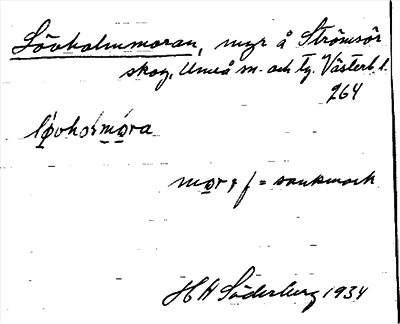 Lövholmmoran, myr å Strömsör
skog, Umeå sn. och tg. Västerb. l.
264
mor, f = sankmark
H H Söderberg 1934